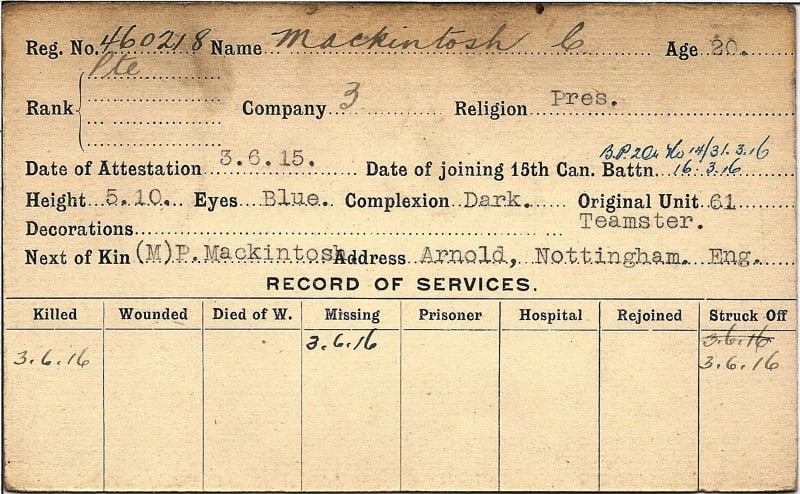 Reg. No. 460218 Name Mackintosh C. Age 20.
Pte
Rank Company 3 Religion Pres.
B.P. 2 14/31.3.16
Date of Attestation 3.6.15. Date of joining 15th Can. Battn. 16.3.16
Height 5.10. Eyes Blue. Complexion Dark. Original Unit 61
Decorations Teamster.
Next of Kin (M)P. Mackintosh. Address Arnold, Nottingham. Eng.
RECORD OF SERVICES.
Killed Wounded Died of W. Missing Prisoner Hospital Rejoined Struck Off
3.6.16 3.6.16
3.6.16 3.6.16